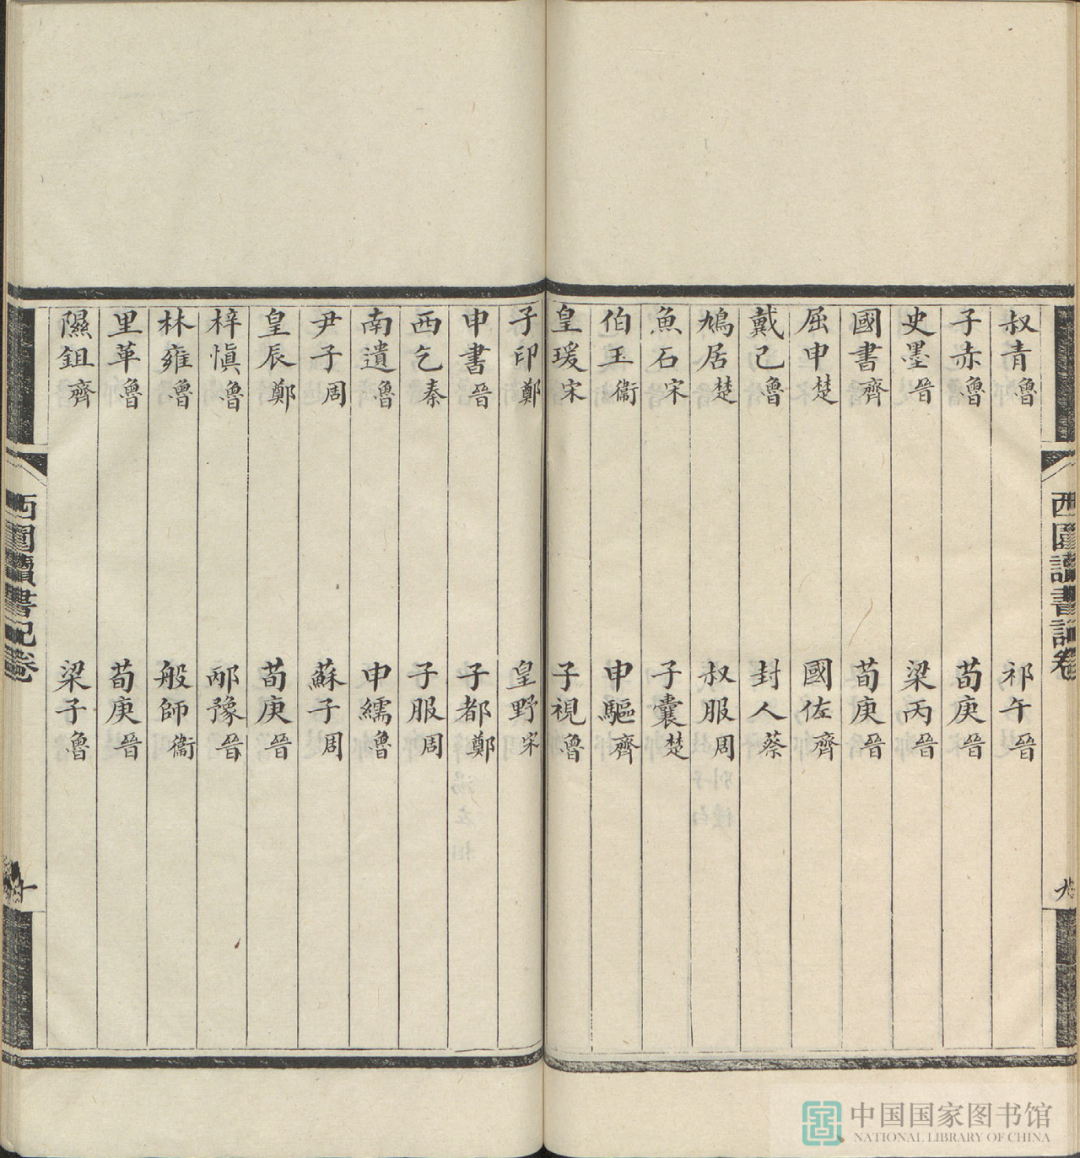 叔青魯 祁午晉
子赤魯 荀庚晉
史墨晉 梁丙晉
國書齊 荀庚晉
屈申楚 國佐齊
戴己魯 封人蔡
鳩居楚 叔服周
魚石宋 子囊楚
伯玉衞 申驅齊
皇瑗宋 子視魯
子印鄭 皇野宋
申書晉 子都鄭
西乞秦 子服周
南遺魯 申繻魯
尹子周 蘇子周
皇辰鄭 荀庚晉
梓愼魯 邴豫晉
林雍魯 般師衞
里革魯 荀庚晉
隰鉏齊 梁子魯
西圃讀書記卷
九
西圃讀書記卷
十
中国国家图书馆
NATIONAL LIBRARY OF CHINA